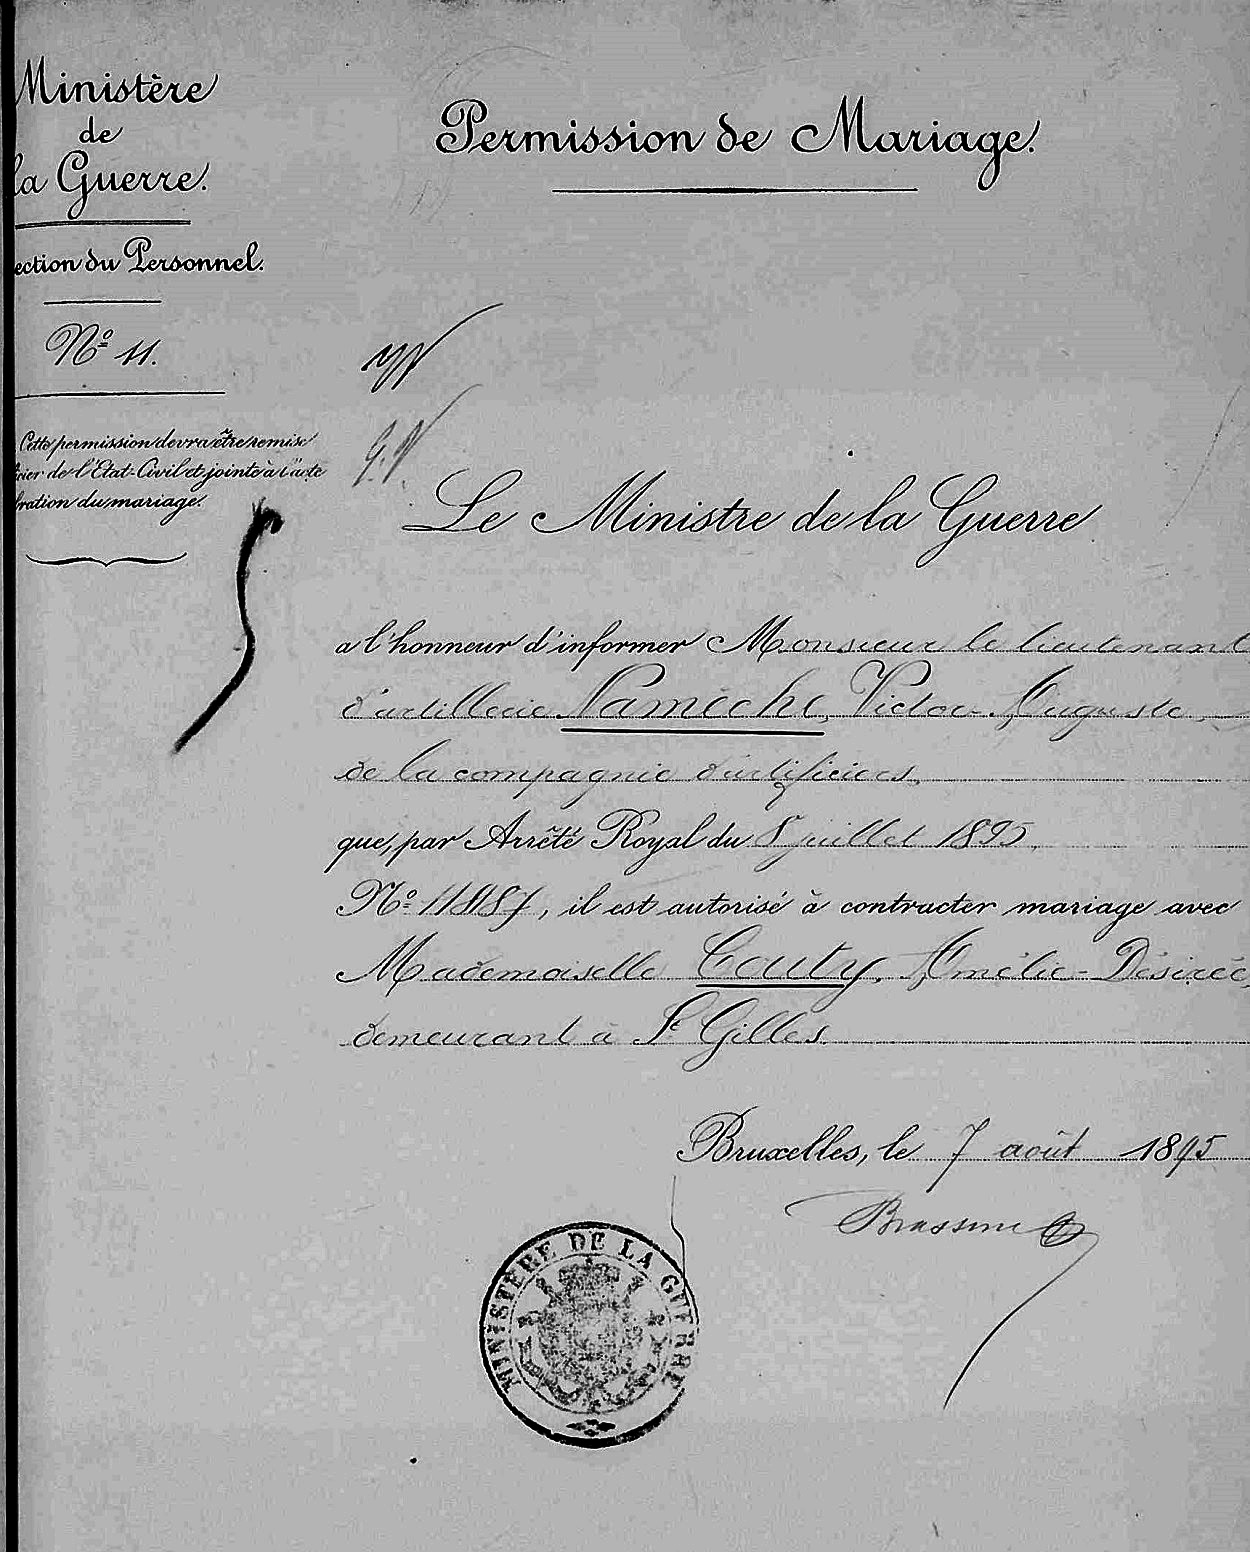 Ministère
de
la Guerre.
ection du Personnel.
Nº 11.
Cette permission devra être remise
cier de l'Etat-Civil et jointe à l'acte
bration du mariage.
Permission de Mariage.
Le Ministre de la Guerre
a l'honneur d'informer Monsieur le lieutenant
d'artillerie Namèche, Victor-Auguste,
de la compagnie d'artificiers,
que, par Arrêté Royal du 8 juillet 1895,
Nº , il est autorisé à contracter mariage avec
Mademoiselle Couty, Amélie-Désirée,
demeurant à St Gilles.
Bruxelles, le 7 août 1895
MINISTÈRE DE LA GUERRE